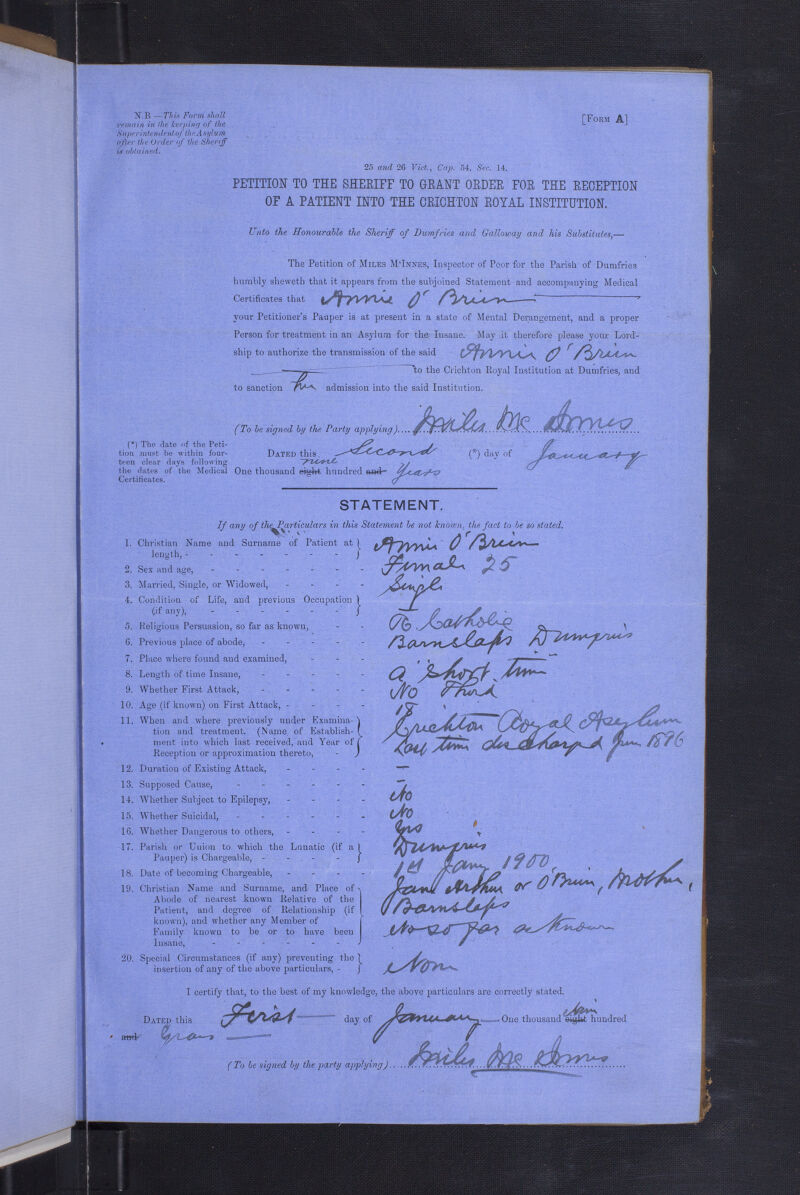 N.B—This Form shall
remain in the keeping of the
Superintendent of the Asylum
after the Order of the Sheriff
is obtained.
[FORM A]
25 and 26 Vict., Cap. 54, Sec. 14.
PETITION TO THE SHERIFF TO GRANT ORDER FOR THE RECEPTION
OF A PATIENT INTO THE CRICHTON ROYAL INSTITUTION.
Unto the Honourable the Sheriff of Dumfries and Galloway and his Substitutes,—
The Petition of MILES M'INNES, Inspector of Poor for the Parish of Dumfries
humbly sheweth that it appears from the subjoined Statement and accompanying Medical
Certificates that Annie O'Brien
your Petitioner's Pauper is at present in a state of Mental Derangement, and a proper
Person for treatment in an Asylum for the Insane. May it therefore please your Lord-
ship to authorize the transmission of the said Annie O'Brien
to the Crichton Royal Institution at Dumfries, and
to sanction her admission into the said Institution.
(To be signed by the Party applying) Miles Mc Innes
(*) The date of the Peti-
tion must be within four-
teen clear days following
the dates of the Medical
Certificates.
DATED this Second (*) day of January
One thousand eight nine hundred and Years
STATEMENT.
If any of the Particulars in this Statement be not known, the fact to be so stated.
1. Christian Name and Surname of Patient at
length, - Annie O'Brien
2. Sex and age, - Female 25
3. Married, Single, or Widowed, - Single
4. Condition of Life, and previous Occupation
(if any), -
5. Religious Persuasion, so far as known, - R Catholic
6. Previous place of abode, - Barnslaps Dumfries
7. Place where found and examined, -
8. Length of time Insane, - a "Short time"
9. Whether First Attack, - No Third
10. Age (if known) on First Attack, - 18
11. When and where previously under Examina-
tion and treatment. (Name of Establish-
ment into which last received, and Year of
Reception or approximation thereto, - Crichton Royal Asylum
Last time discharged June 1896
12. Duration of Existing Attack, - —
13. Supposed Cause, - —
14. Whether Subject to Epilepsy, - No
15. Whether Suicidal, - No
16. Whether Dangerous to others, - Yes
17. Parish or Union to which the Lunatic (if a
Pauper) is Chargeable, - Dumfries
18. Date of becoming Chargeable, - 1st Jany 1900
19. Christian Name and Surname, and Place of
Abode of nearest known Relative of the
Patient, and degree of Relationship (if
known), and whether any Member of
Family known to be or to have been
Insane, - Jane Arthur or O'Brien, Mother,
Barnslaps
No so far as known
20. Special Circumstances (if any) preventing the
insertion of any of the above particulars, - None
I certify that, to the best of my knowledge, the above particulars are correctly stated.
DATED this First day of January One thousand eight Nine hundred
and Years
(To be signed by the party applying) Miles Mc Innes